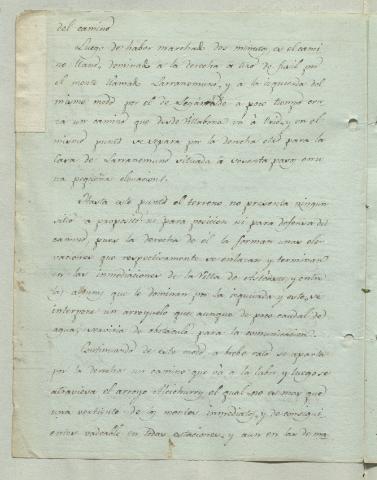 del camino
Luego de haber marchado dos minutos es el cami
no llano, dominado a la derecha a tiro de fusil por
el monte llamado Larranemuno, y a la izquierda del
mismo modo por el de a poco tiempo cru
za un camino que desde Villabona va á y en el
mismo punto se separa por la derecha otro para la
Casa de Larranemuno situada á sesenta pasos en u
na pequeña elevacion.
Hasta este punto el terreno no presenta ningun
sitio a proposito ni para posicion ni para defensa del
camino, pues la derecha de él la forman unas ele
vaciones que respectivamente se enlazan y terminan
en las inmediaciones de la Villa de y entre
las alturas que le dominan por la izquierda y esto, se
interpone un arroyuelo que aunque de poco caudal de
agua, serviria de obstaculo para la comunicacion.
Continuando de este modo, a breve rato se aparta
por la derecha un camino que vá a la labor y luego se
atraviesa el arroyo el qual no es mas que
una vertiente de los montes inmediatos, y de consigui
ente vadeable en todas estaciones, y aun en las de ma